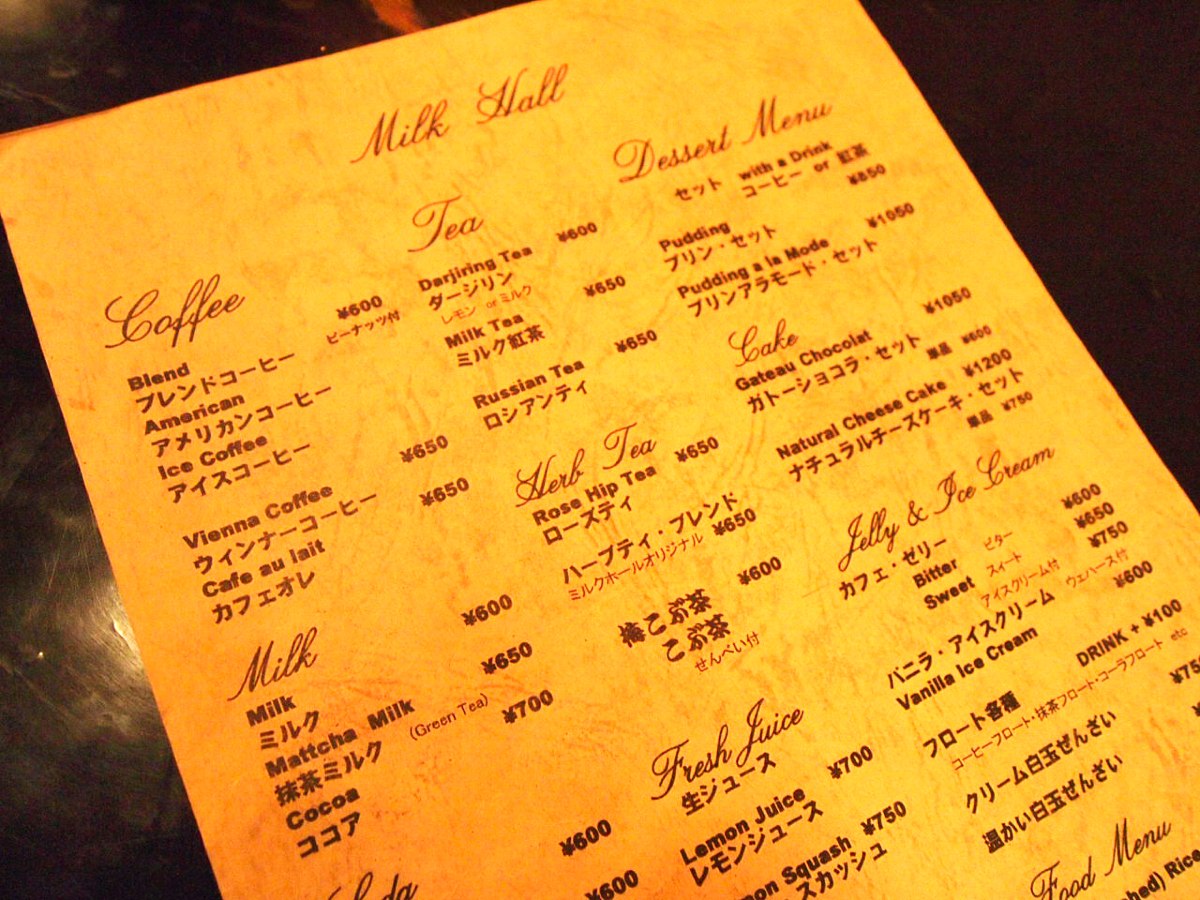 Milk Hall
Coffee
¥600
ピーナッツ付
Blend
ブレンドコーヒー
American
アメリカンコーヒー
Ice Coffee
アイスコーヒー
¥650
Vienna Coffee
ウィンナーコーヒー
¥650
Cafe au lait
カフェオレ
Milk
¥600
Milk
ミルク
¥650
Mattcha Milk
抹茶ミルク (Green Tea)
¥700
Cocoa
ココア
¥600
¥600
Tea
Darjiring Tea ¥600
ダージリン
レモン or ミルク
Milk Tea ¥650
ミルク紅茶
Russian Tea ¥650
ロシアンティ
Herb Tea
Rose Hip Tea ¥650
ローズティ
ハーブティ・ブレンド
ミルクホールオリジナル ¥650
こぶ茶 ¥600
こぶ茶
せんべい付
Fresh Juice
生ジュース
Lemon Juice ¥700
レモンジュース
Squash ¥750
スカッシュ
Dessert Menu
セット with a Drink
コーヒー or 紅茶
¥850
Pudding
プリン・セット
¥1050
Pudding a la Mode
プリンアラモード・セット
Cake
Gateau Chocolat ¥1050
ガトーショコラ・セット
単品 ¥600
Natural Cheese Cake ¥1200
ナチュラルチーズケーキ・セット
単品 ¥750
Jelly & Ice Cream
カフェ・ゼリー ¥600
Bitter ビター ¥650
Sweet スイート ¥750
アイスクリーム付 ウェハース付
バニラ・アイスクリーム ¥600
Vanilla Ice Cream
フロート各種 DRINK + ¥100
コーヒーフロート・抹茶フロート・コーラフロート etc
クリーム白玉ぜんざい
温かい白玉ぜんざい
Food Menu
Rice